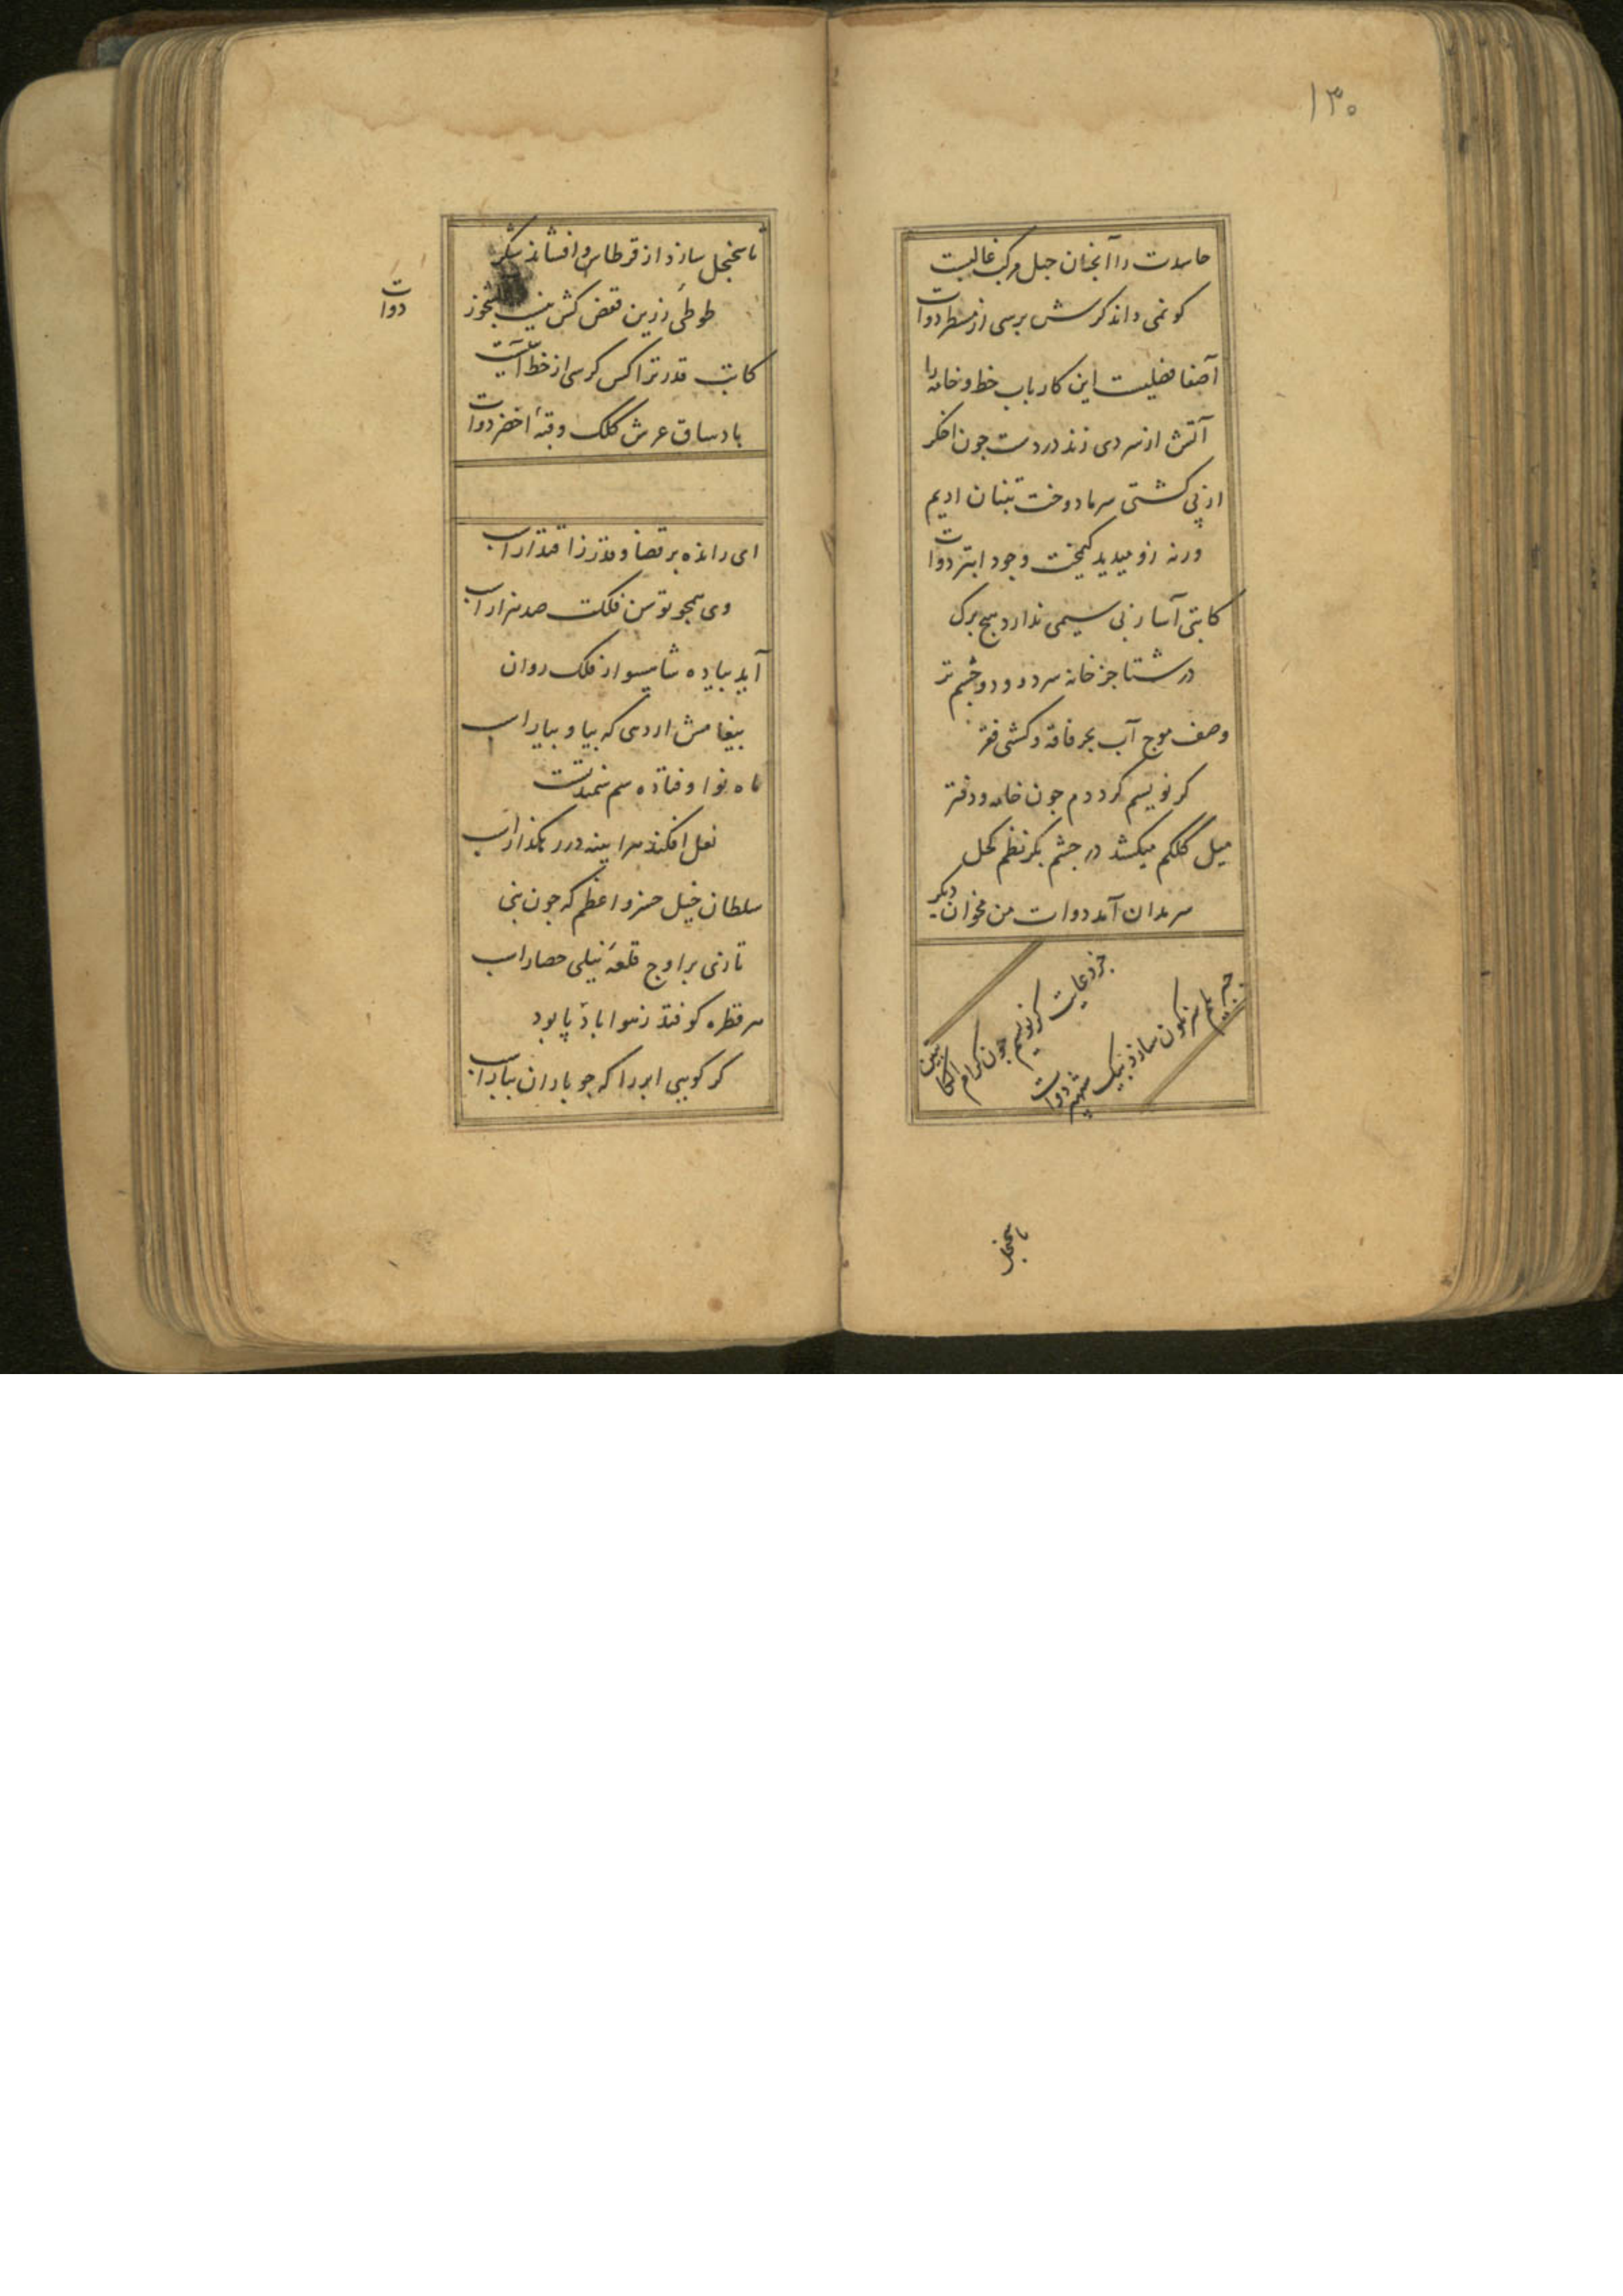 ۱۳۰
حاسدت را آنجنان جهل مرکب غالبست
کو نمی داند کرش برسی از مسطر دوات
آصفا فضلیت این کارباب خط و خامه را
آتش از سردی زند در دست جون اخکر
از پی کشتی سرما دوخت تنبان ادیم
ورنه زو میدید کیمخت وجود ابتر دوات
کاتبی آسا ز بی سیمی ندارد هیچ برک
در شتا جز خانه سرد و دو چشم تر
وصف موج آب بحر فاقه و کشتی فقر
کر نویسم کردد م جون خامه و دفتر
میل کلکم میکشد در جشم بکر نظم کحل
سرمدان آمد دوات من مخوان دیکر
جزو عایت کر نویسم جون کرام الکاتبین
جرم سرنکون سازد بنیک شهپر دوات
تا سجنجل
تا سجنجل سازد از قرطاس و افشاند شکر
طوطی زرین قفص کش نیست بجوز
دوات
کاتب قدر ترا کس کرسی از خط آیت
باد ساق عرش کلک و قبهٔ اخضر دوات
ای رانده بر قضا و قدر ز اقتدار اسب
وی همجو توسن فلکت صد هزار اسب
آید بیاده شاهسوار فلک روان
بیغامش ار دهی که بیا و بیار اسب
ماه نو اوفتاده سم سمندتست
نعل افکند هر اینه در رهکذار اسب
سلطان خیل خسرو اعظم که جون نبی
تازی بر اوج قلعهٔ نیلی حصار اسب
هر قطره کوفتد ز هوا باد پا بود
کر کویی ابر را که جو باران ببار اسب